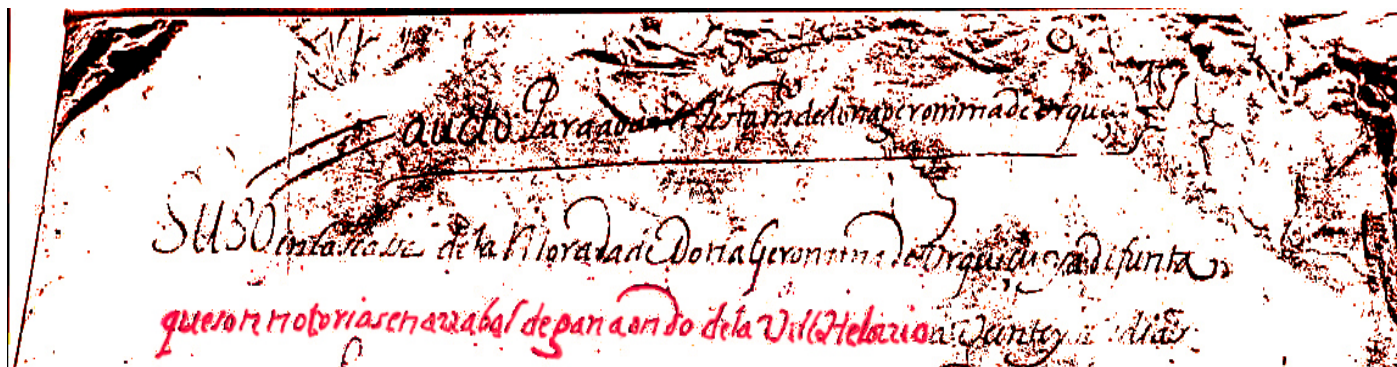 aucto Para abrir el testamto de dona geronima de urqui
SUSO en las casas de la Morada de Doña Geronima de Urquiçu ya difunta
que son notorias en arrabal de pana ondo de la Villa de a Veinte y dias